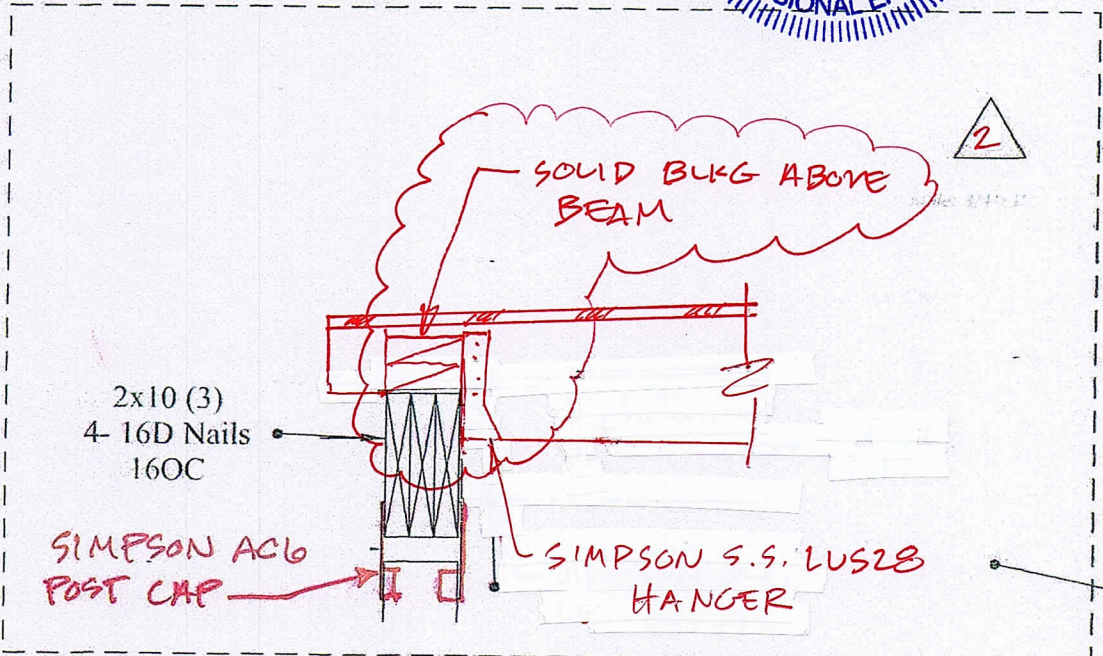 SIONAL E
2
SOLID BLKG ABOVE
BEAM
2x10 (3)
4- 16D Nails
16OC
SIMPSON AC6
POST CAP
SIMPSON S.S. LUS28
HANGER